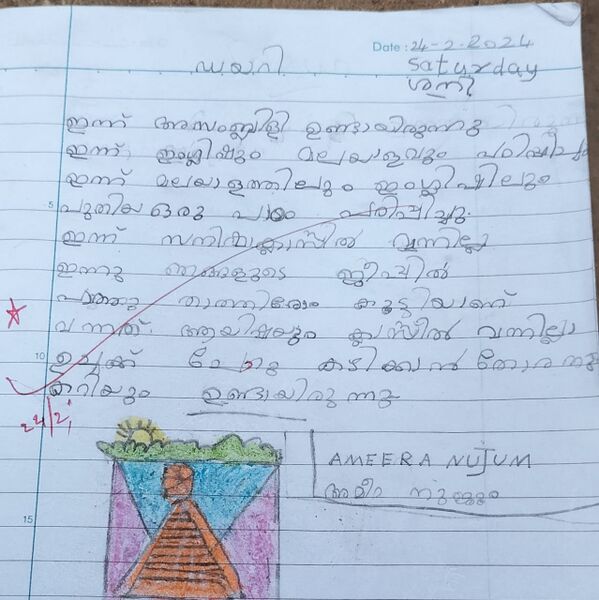 Date : 24-2-2024
ഡയറി
Saturday
ശനി
ഇന്ന് അസംബ്ലി ഉണ്ടായിരുന്നു
ഇന്ന് ഇംഗ്ലീഷും മലയാളവും പഠിപ്പിച്ചു
ഇന്ന് മലയാളത്തിലും ഇംഗ്ലീഷിലും
5
പുതിയ ഒരു പാഠം പഠിപ്പിച്ചു.
ഇന്ന് ക്ലാസ്സിൽ വന്നില്ല
ഇന്നു ഞങ്ങളുടെ ജീപ്പിൽ
കൂട്ടിയാണ്
വന്നത്. ആയിഷയും ക്ലാസിൽ വന്നില്ലാ
10
ഉച്ചക്ക് കടിക്കാൻ തോരനും
കറിയും ഉണ്ടായിരുന്നു
24/2
AMEERA NUJUM
അമീറ നുജും
15